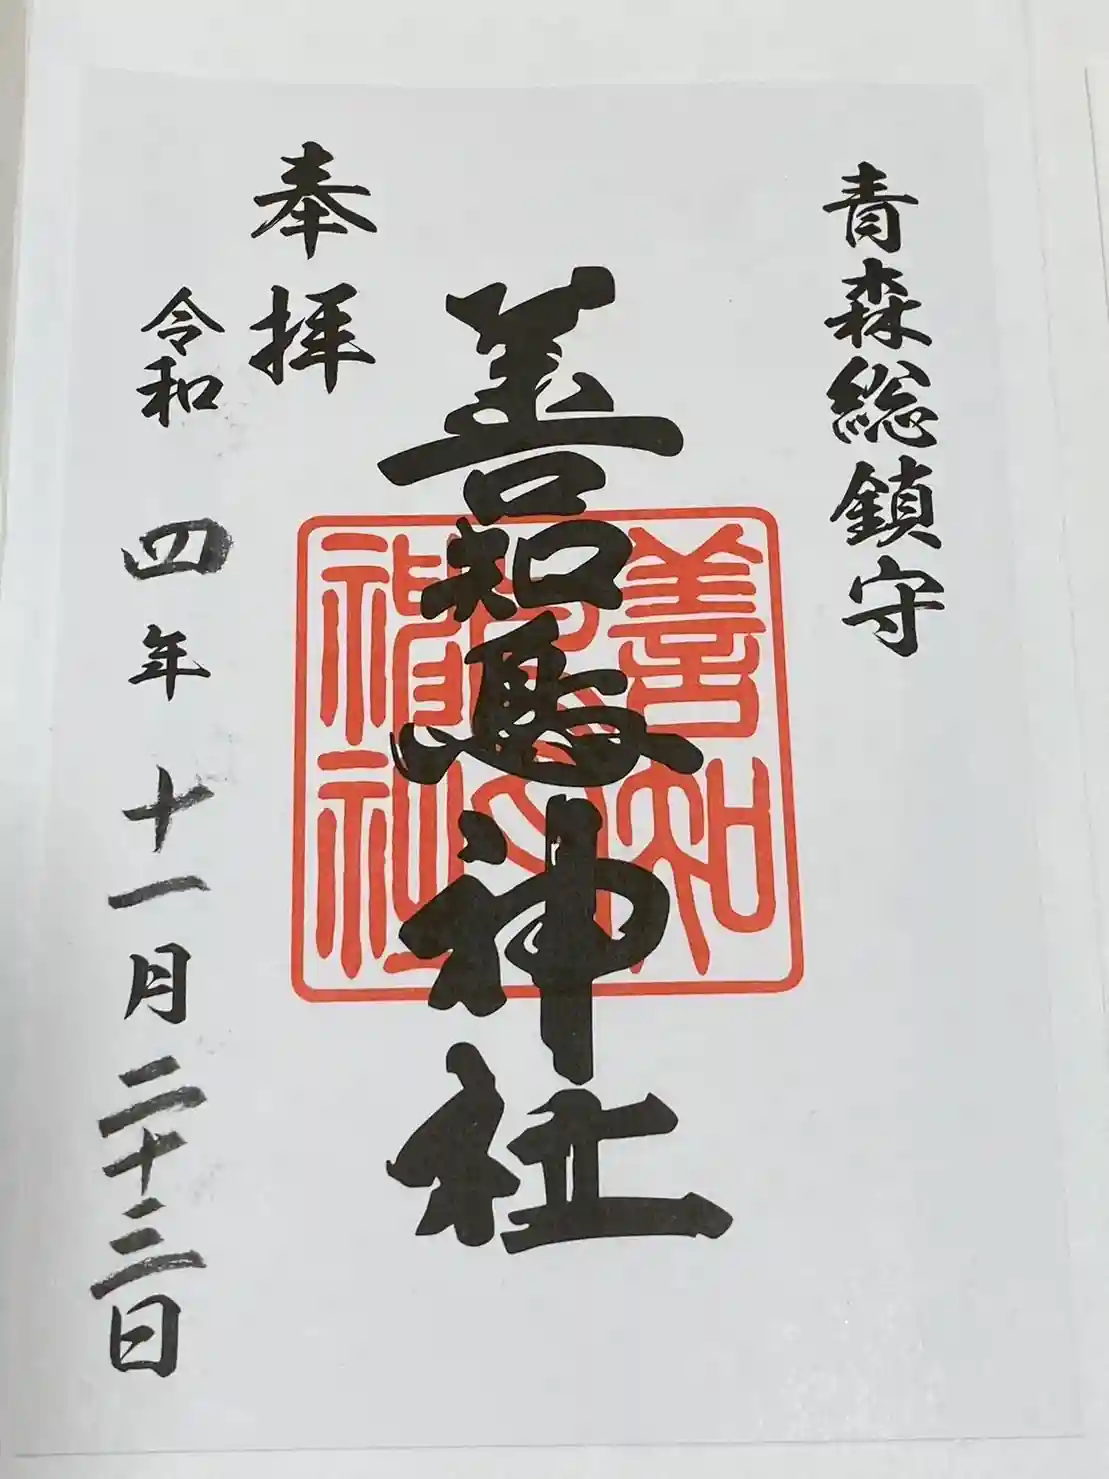 青森総鎮守
善知鳥神社
善知鳥神社
奉拝
令和四年十一月二十三日